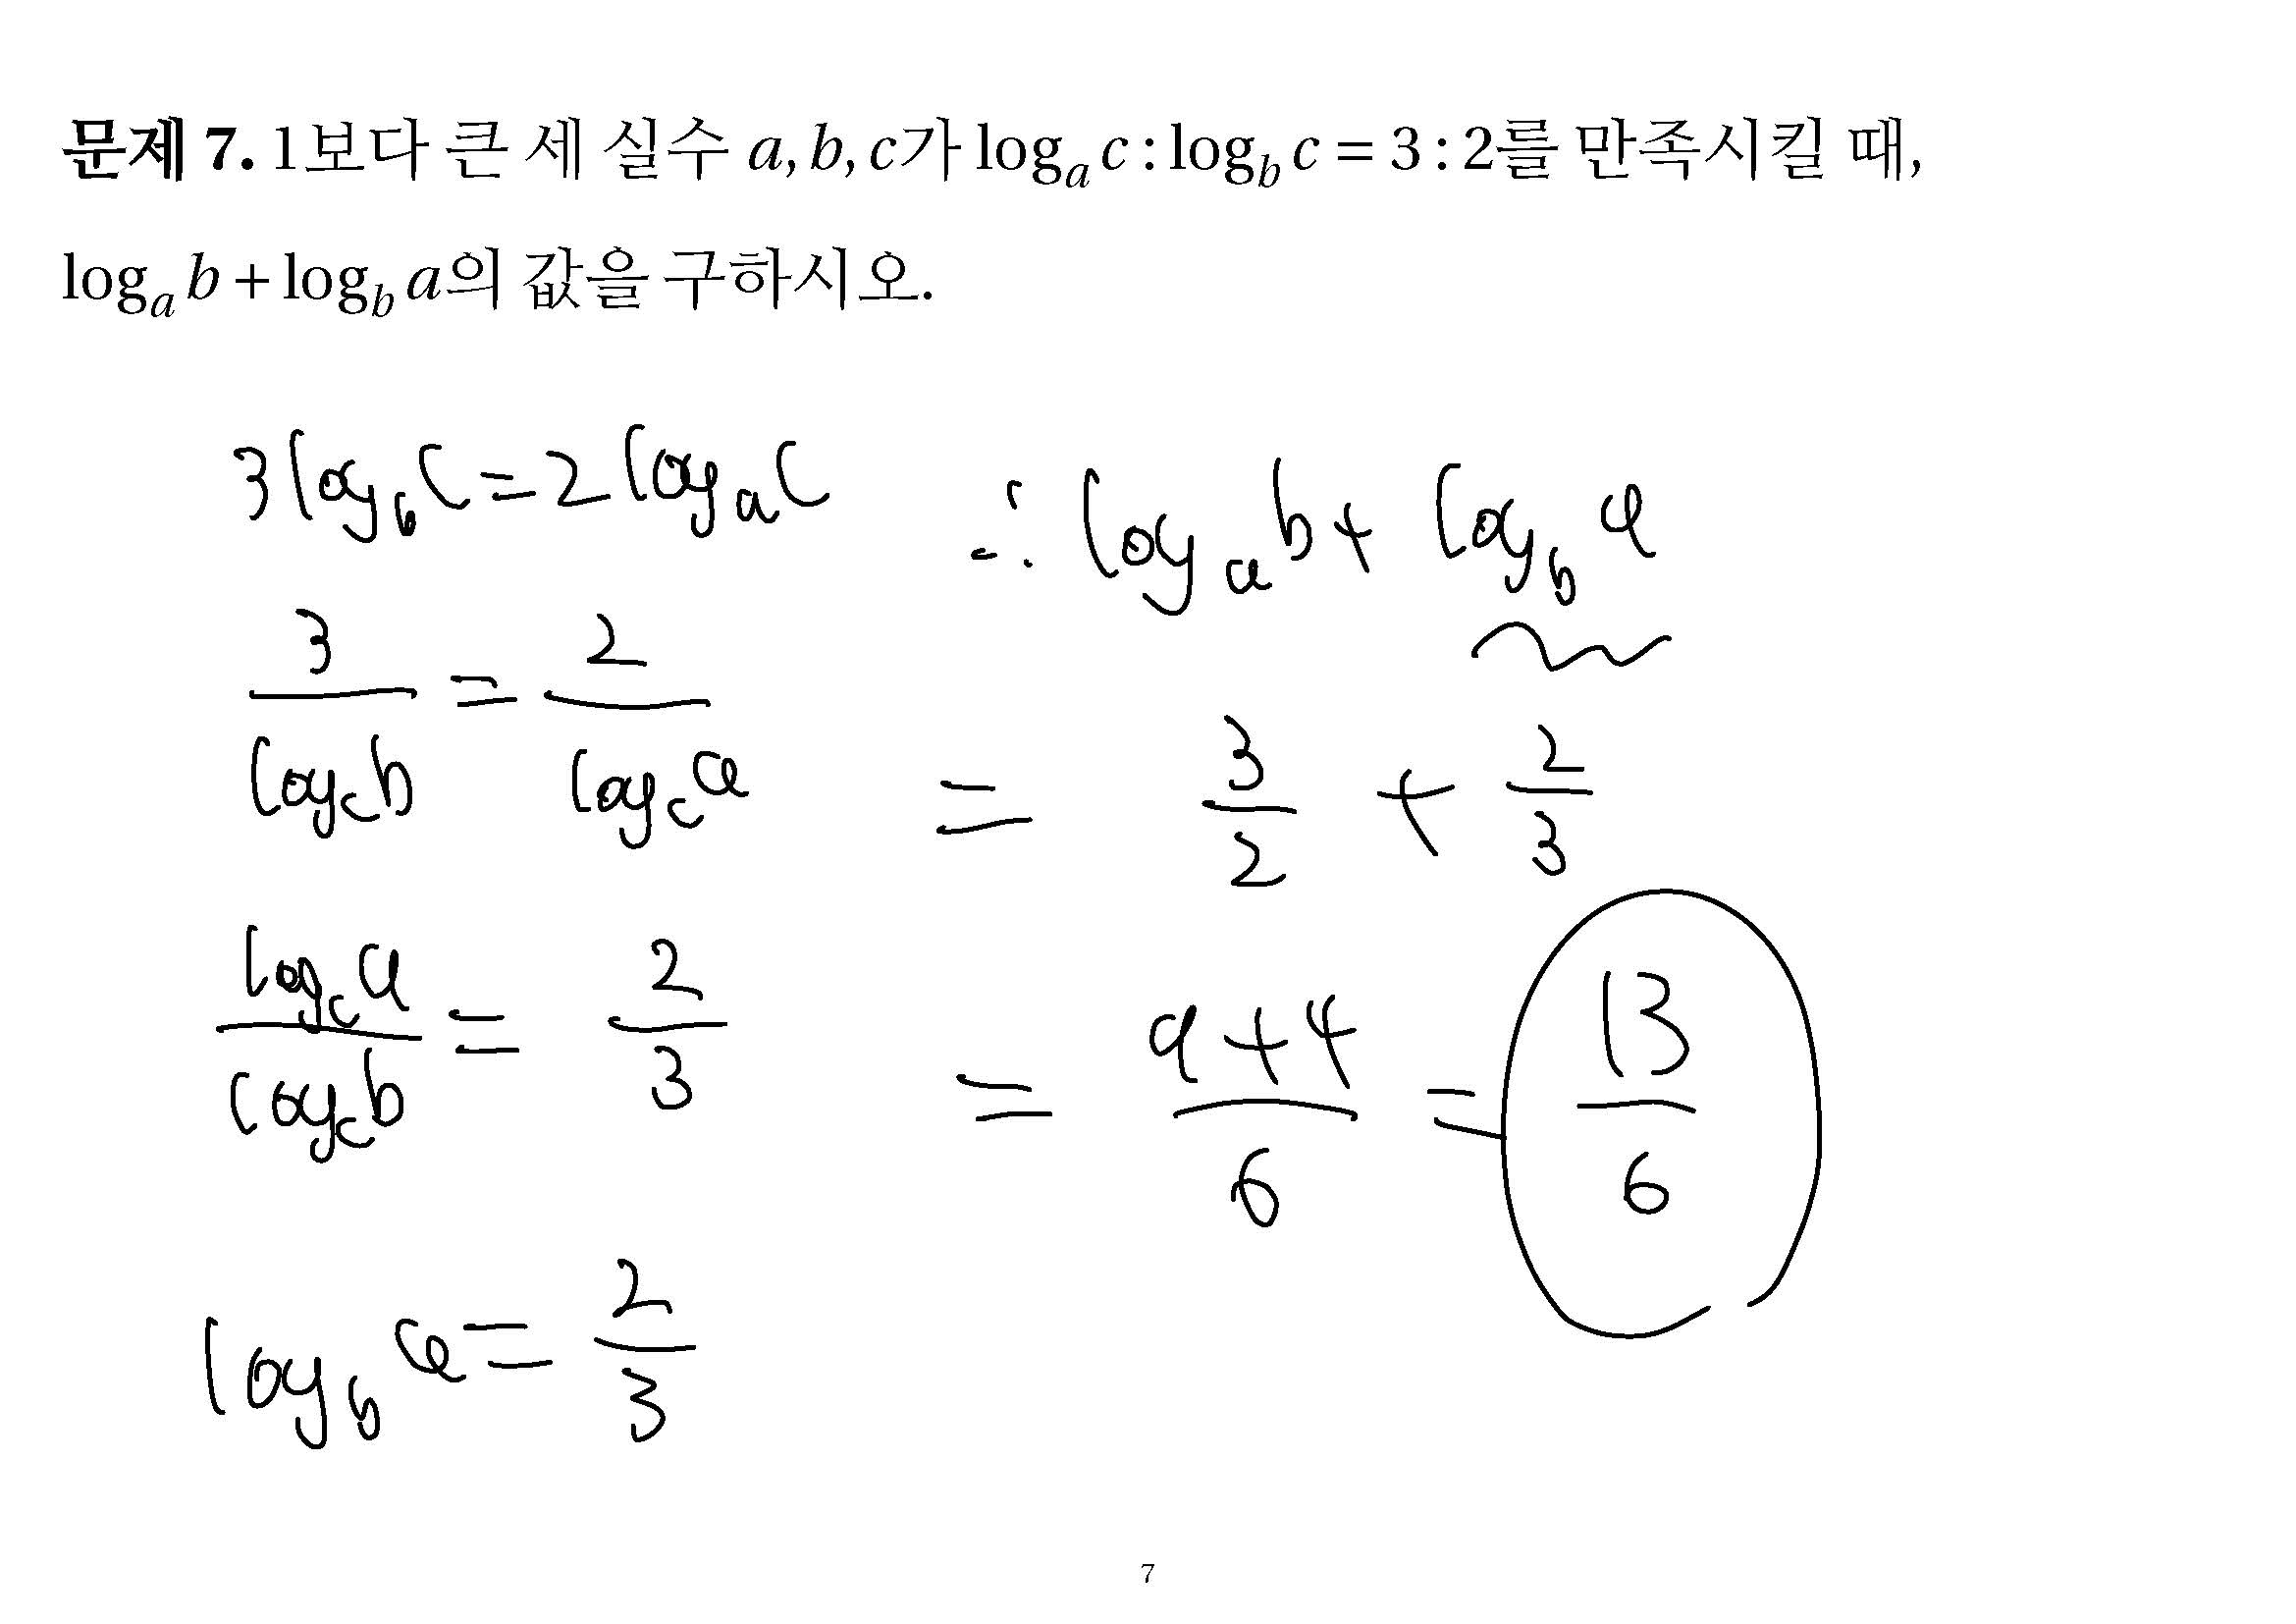 문제 7. 1보다 큰 세 실수 a, b, c가 log_a c : log_b c = 3 : 2를 만족시킬 때,
log_a b + log_b a의 값을 구하시오.
3 log_b c = 2 log_a c
3/log_c b = 2/log_c a
log_c a/log_c b = 2/3
log_b a = 2/3
∴ log_a b + log_b a
= 3/2 + 2/3
= 9+4/6 = 13/6
7